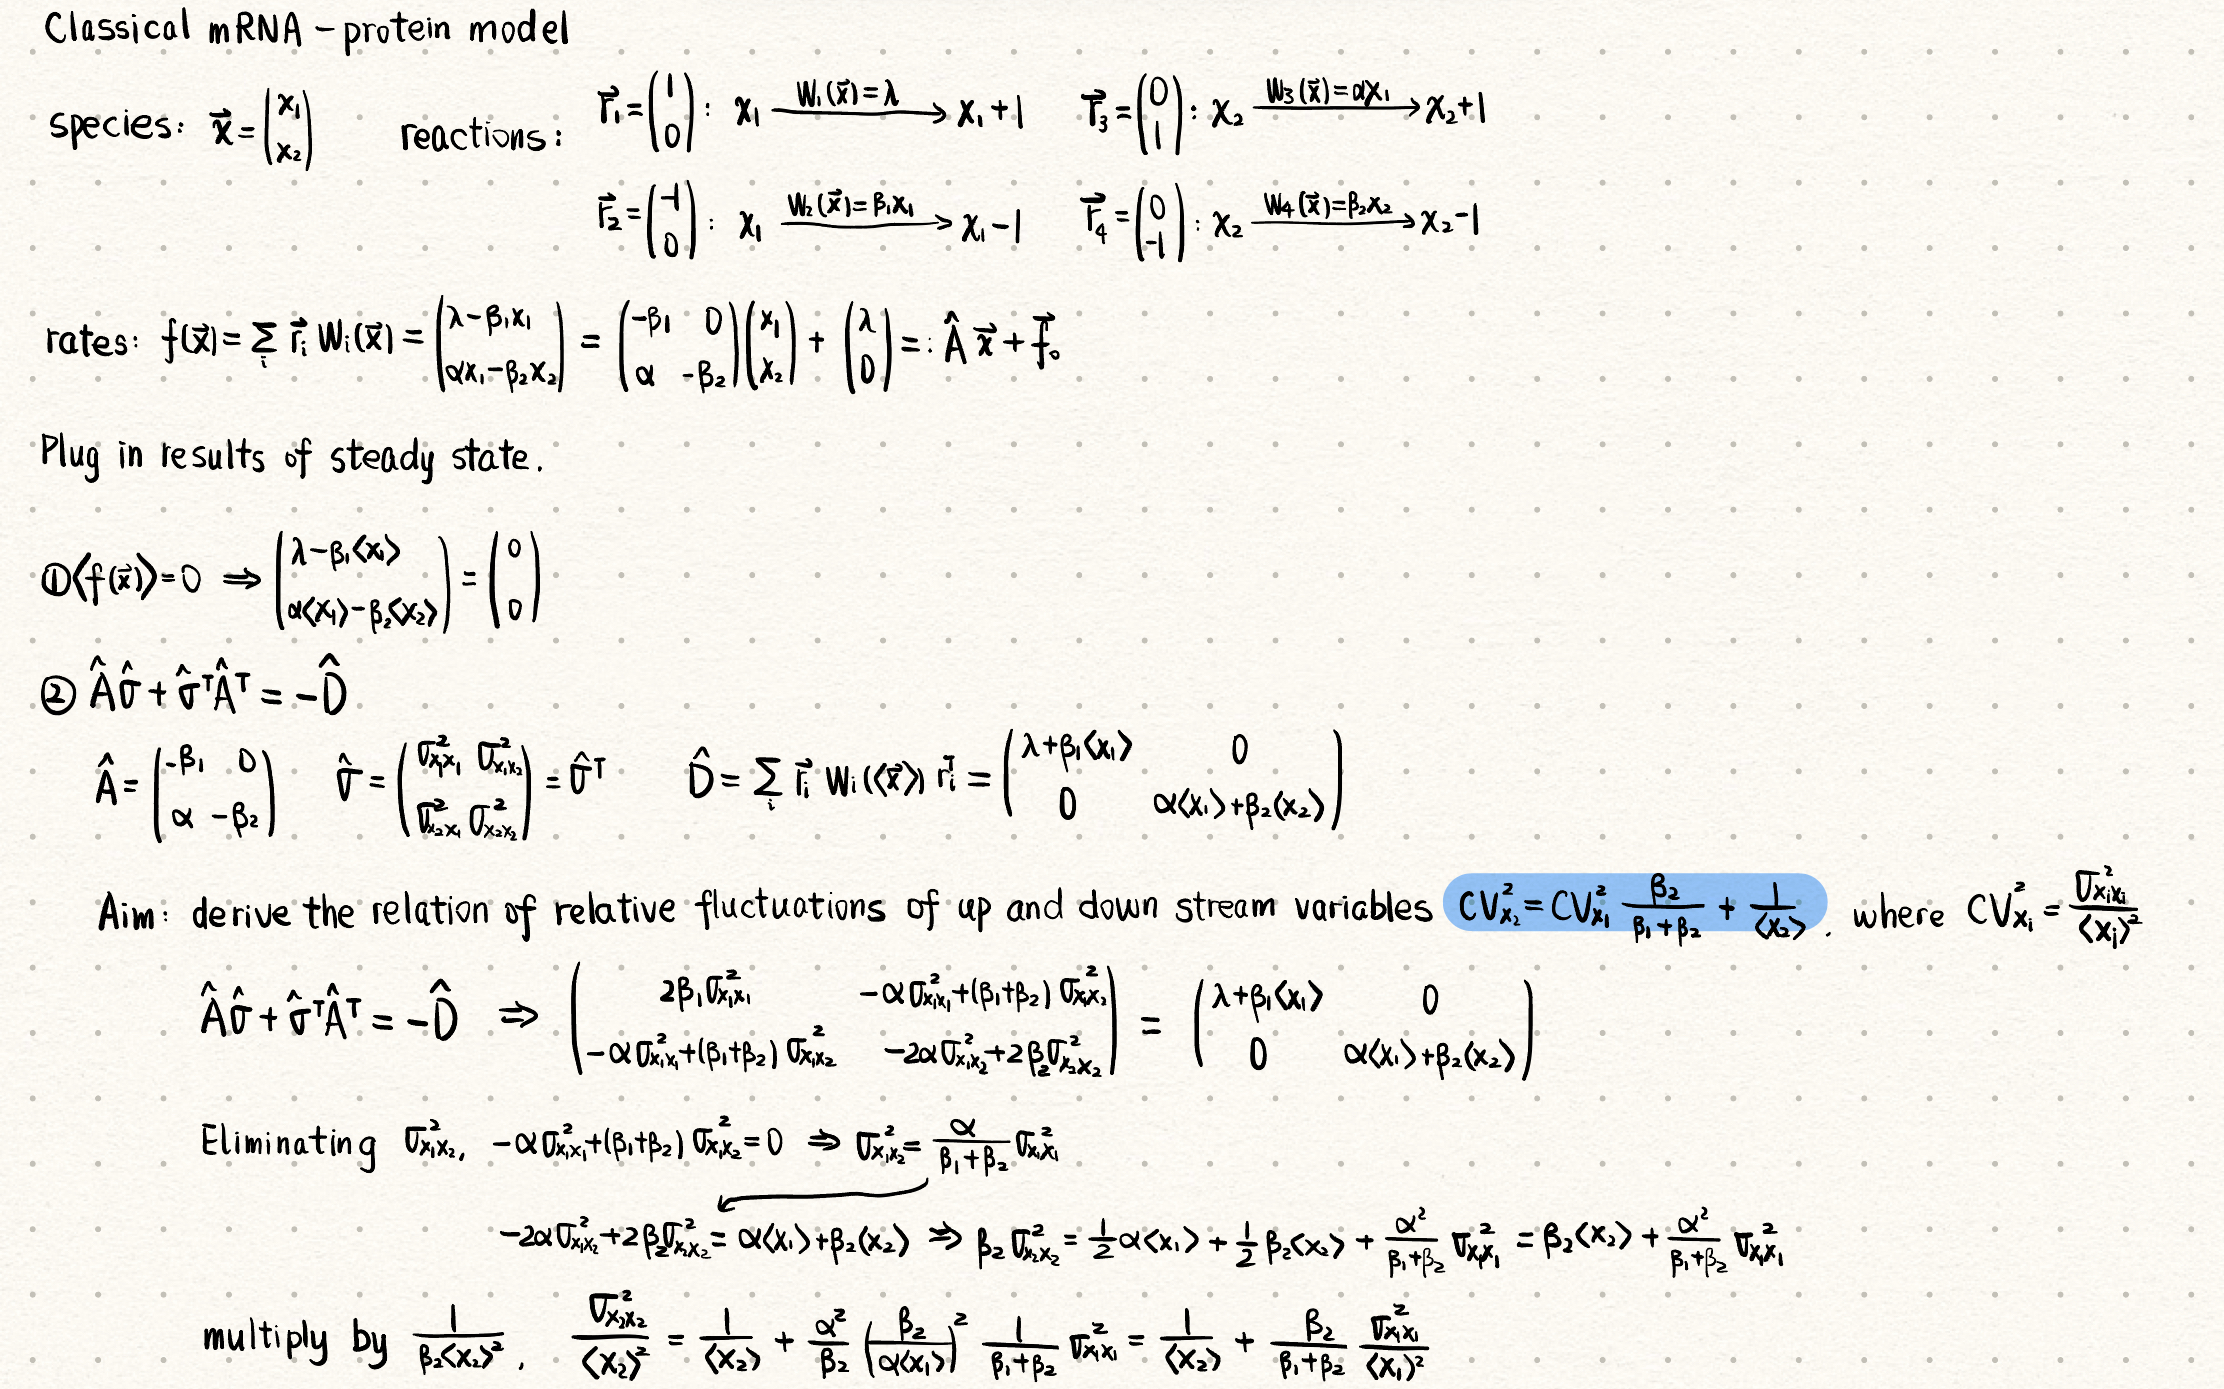 Classical mRNA – protein model
species: x⃗ = (x₁ ; x₂)  reactions: r⃗₁ = (1 ; 0) : x₁ —W₁(x⃗)=λ→ x₁+1  r⃗₃ = (0 ; 1) : x₂ —W₃(x⃗)=αx₁→ x₂+1
r⃗₂ = (-1 ; 0) : x₁ —W₂(x⃗)=β₁x₁→ x₁-1  r⃗₄ = (0 ; -1) : x₂ —W₄(x⃗)=β₂x₂→ x₂-1
rates: f(x⃗) = Σᵢ r⃗ᵢ Wᵢ(x⃗) = (λ-β₁x₁ ; αx₁-β₂x₂) = (-β₁ 0 ; α -β₂)(x₁ ; x₂) + (λ ; 0) =: Â x⃗ + f⃗₀
Plug in results of steady state.
① ⟨f(x⃗)⟩ = 0 ⇒ (λ-β₁⟨x₁⟩ ; α⟨x₁⟩-β₂⟨x₂⟩) = (0 ; 0)
② Âσ̂ + σ̂ᵀÂᵀ = -D̂
Â = (-β₁ 0 ; α -β₂)  σ̂ = (σ²_x₁x₁ σ²_x₁x₂ ; σ²_x₂x₁ σ²_x₂x₂) = σ̂ᵀ  D̂ = Σᵢ r⃗ᵢ Wᵢ(⟨x⃗⟩) r⃗ᵢᵀ = (λ+β₁⟨x₁⟩ 0 ; 0 α⟨x₁⟩+β₂⟨x₂⟩)
Aim: derive the relation of relative fluctuations of up and down stream variables CV²_x₂ = CV²_x₁ β₂/(β₁+β₂) + 1/⟨x₂⟩. where CV²_xᵢ = σ²_xᵢxᵢ/⟨xᵢ⟩²
Âσ̂ + σ̂ᵀÂᵀ = -D̂ ⇒ (2β₁σ²_x₁x₁ -ασ²_x₁x₁+(β₁+β₂)σ²_x₁x₂ ; -ασ²_x₁x₁+(β₁+β₂)σ²_x₁x₂ -2ασ²_x₁x₂+2β₂σ²_x₂x₂) = (λ+β₁⟨x₁⟩ 0 ; 0 α⟨x₁⟩+β₂⟨x₂⟩)
Eliminating σ²_x₁x₂, -ασ²_x₁x₁+(β₁+β₂)σ²_x₁x₂ = 0 ⇒ σ²_x₁x₂ = α/(β₁+β₂) σ²_x₁x₁
-2ασ²_x₁x₂+2β₂σ²_x₂x₂ = α⟨x₁⟩+β₂⟨x₂⟩ ⇒ β₂σ²_x₂x₂ = 1/2 α⟨x₁⟩ + 1/2 β₂⟨x₂⟩ + α²/(β₁+β₂) σ²_x₁x₁ = β₂⟨x₂⟩ + α²/(β₁+β₂) σ²_x₁x₁
multiply by 1/(β₂⟨x₂⟩²), σ²_x₂x₂/⟨x₂⟩² = 1/⟨x₂⟩ + α²/β₂ (β₂/(α⟨x₁⟩))² 1/(β₁+β₂) σ²_x₁x₁ = 1/⟨x₂⟩ + β₂/(β₁+β₂) σ²_x₁x₁/⟨x₁⟩²